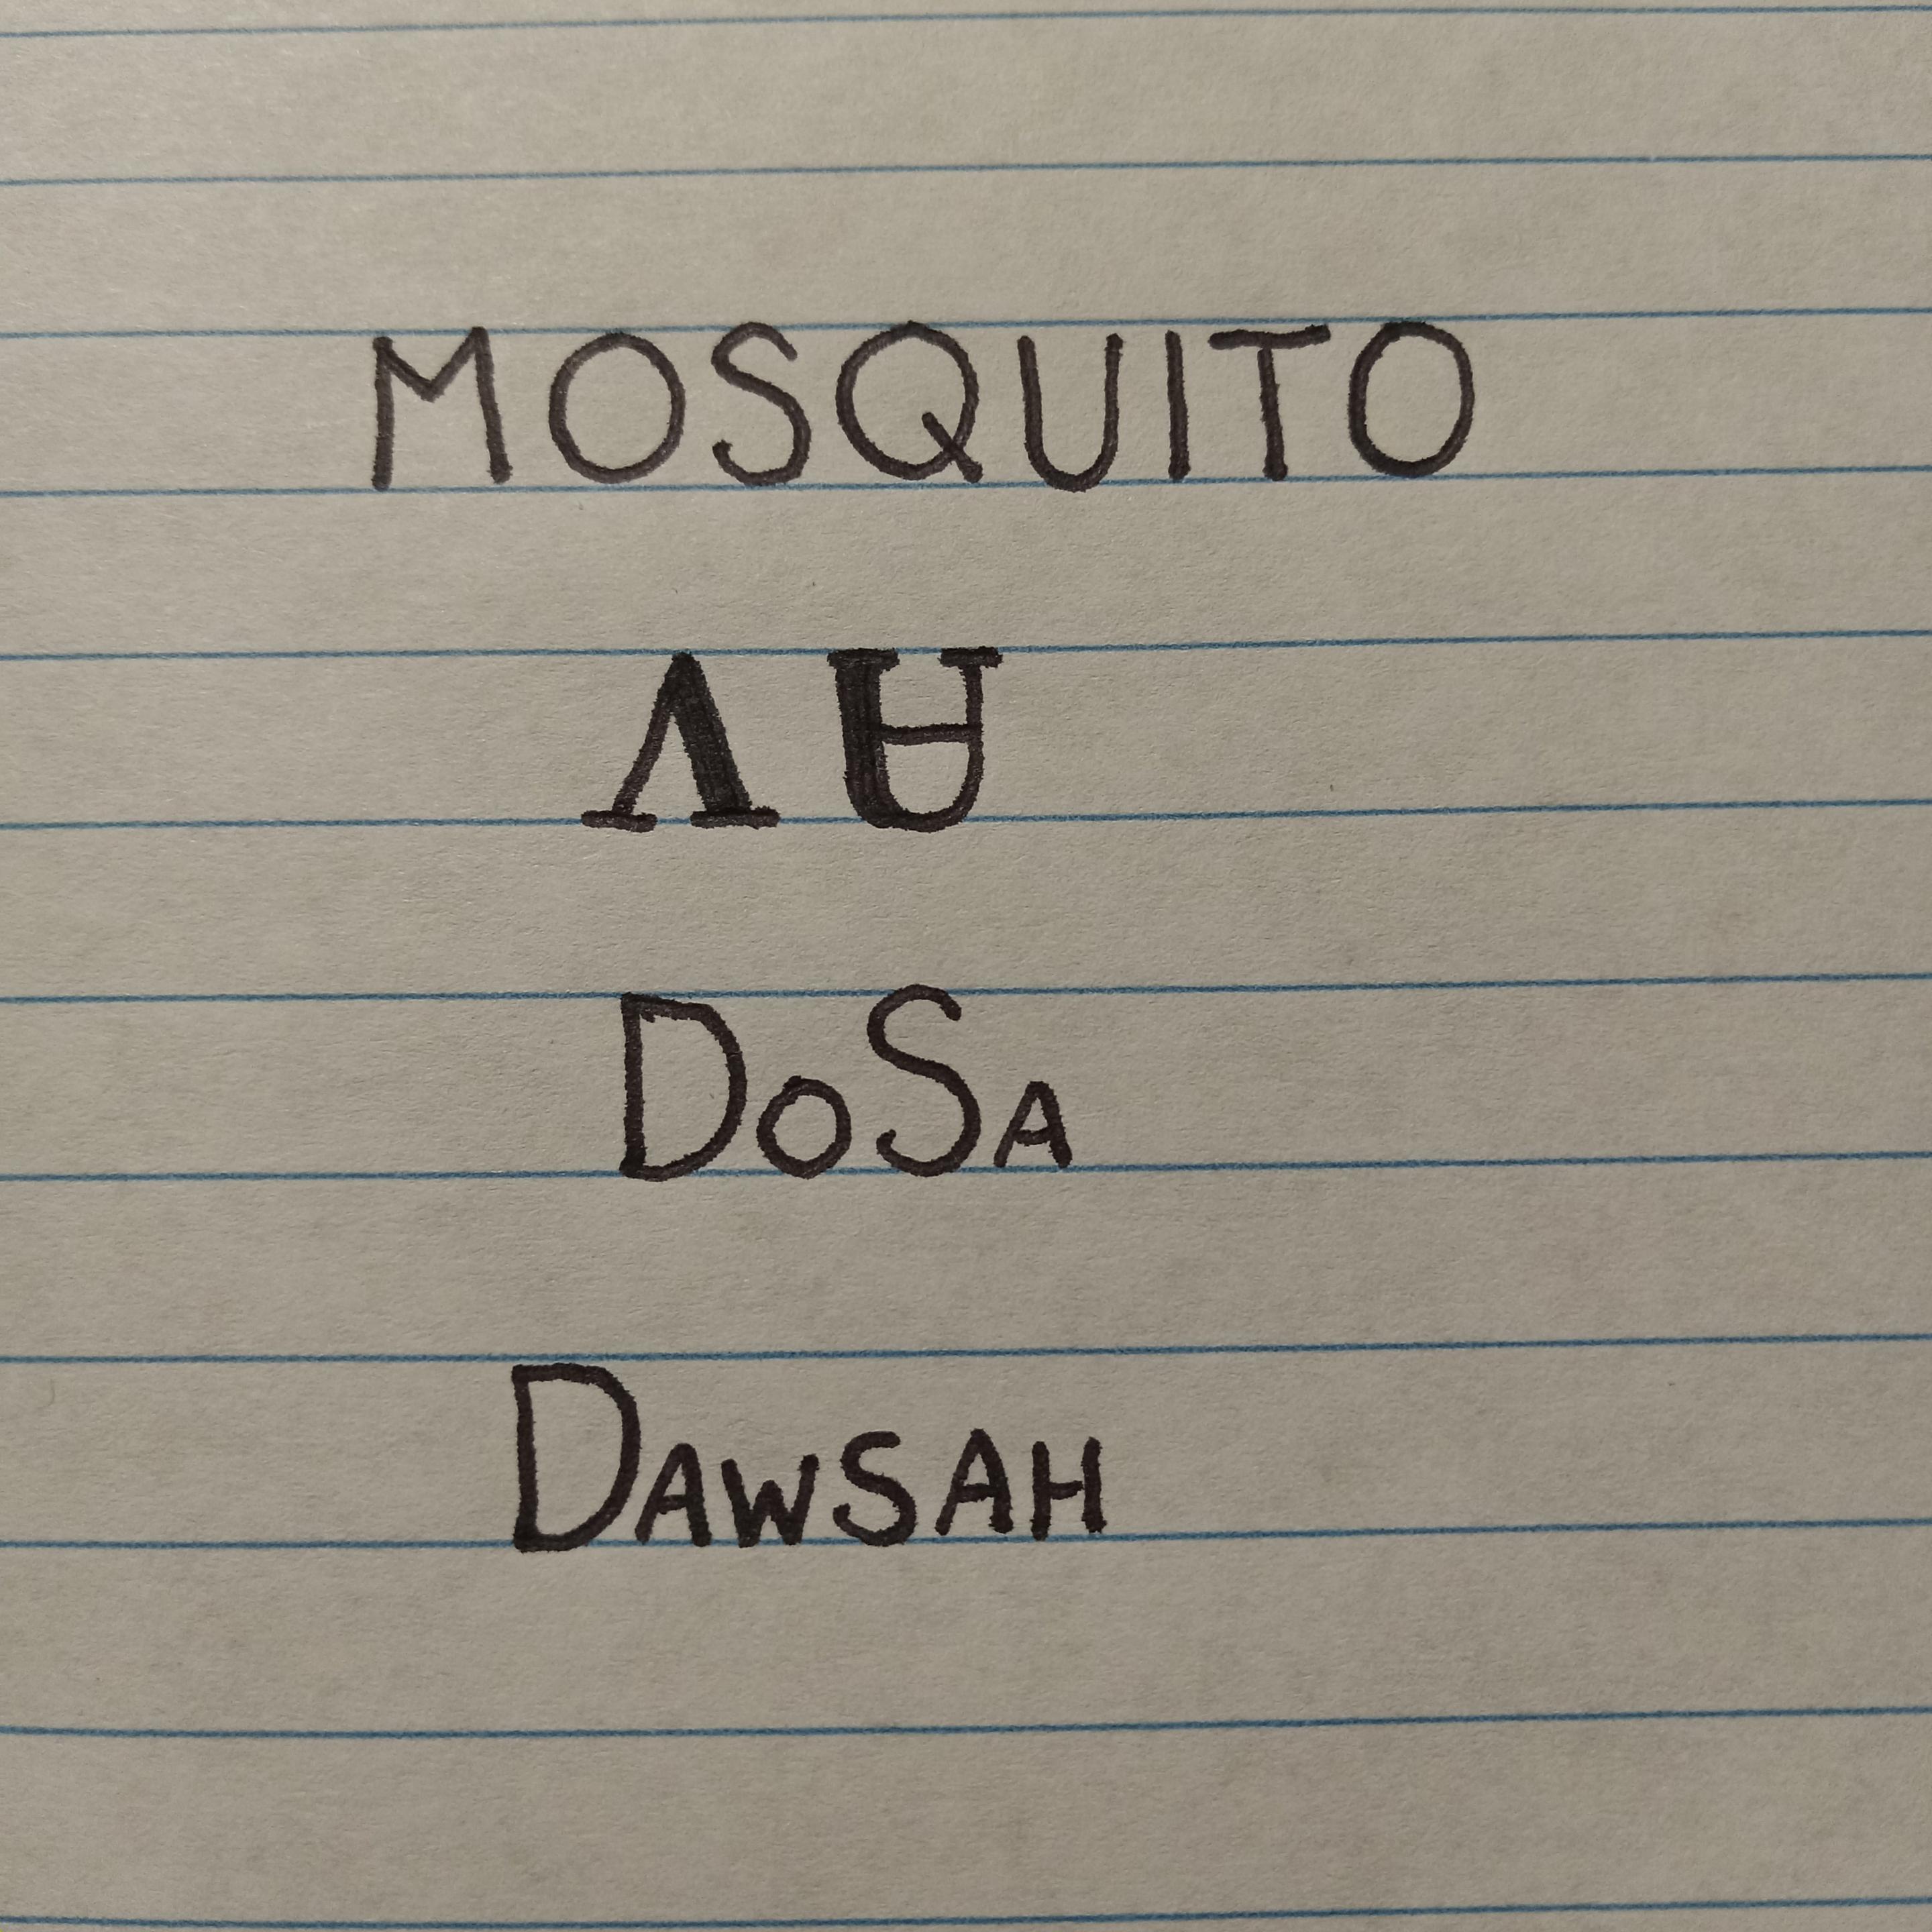 MOSQUITO
Ꮩ Ꮜ
DoSa
DAWSAH